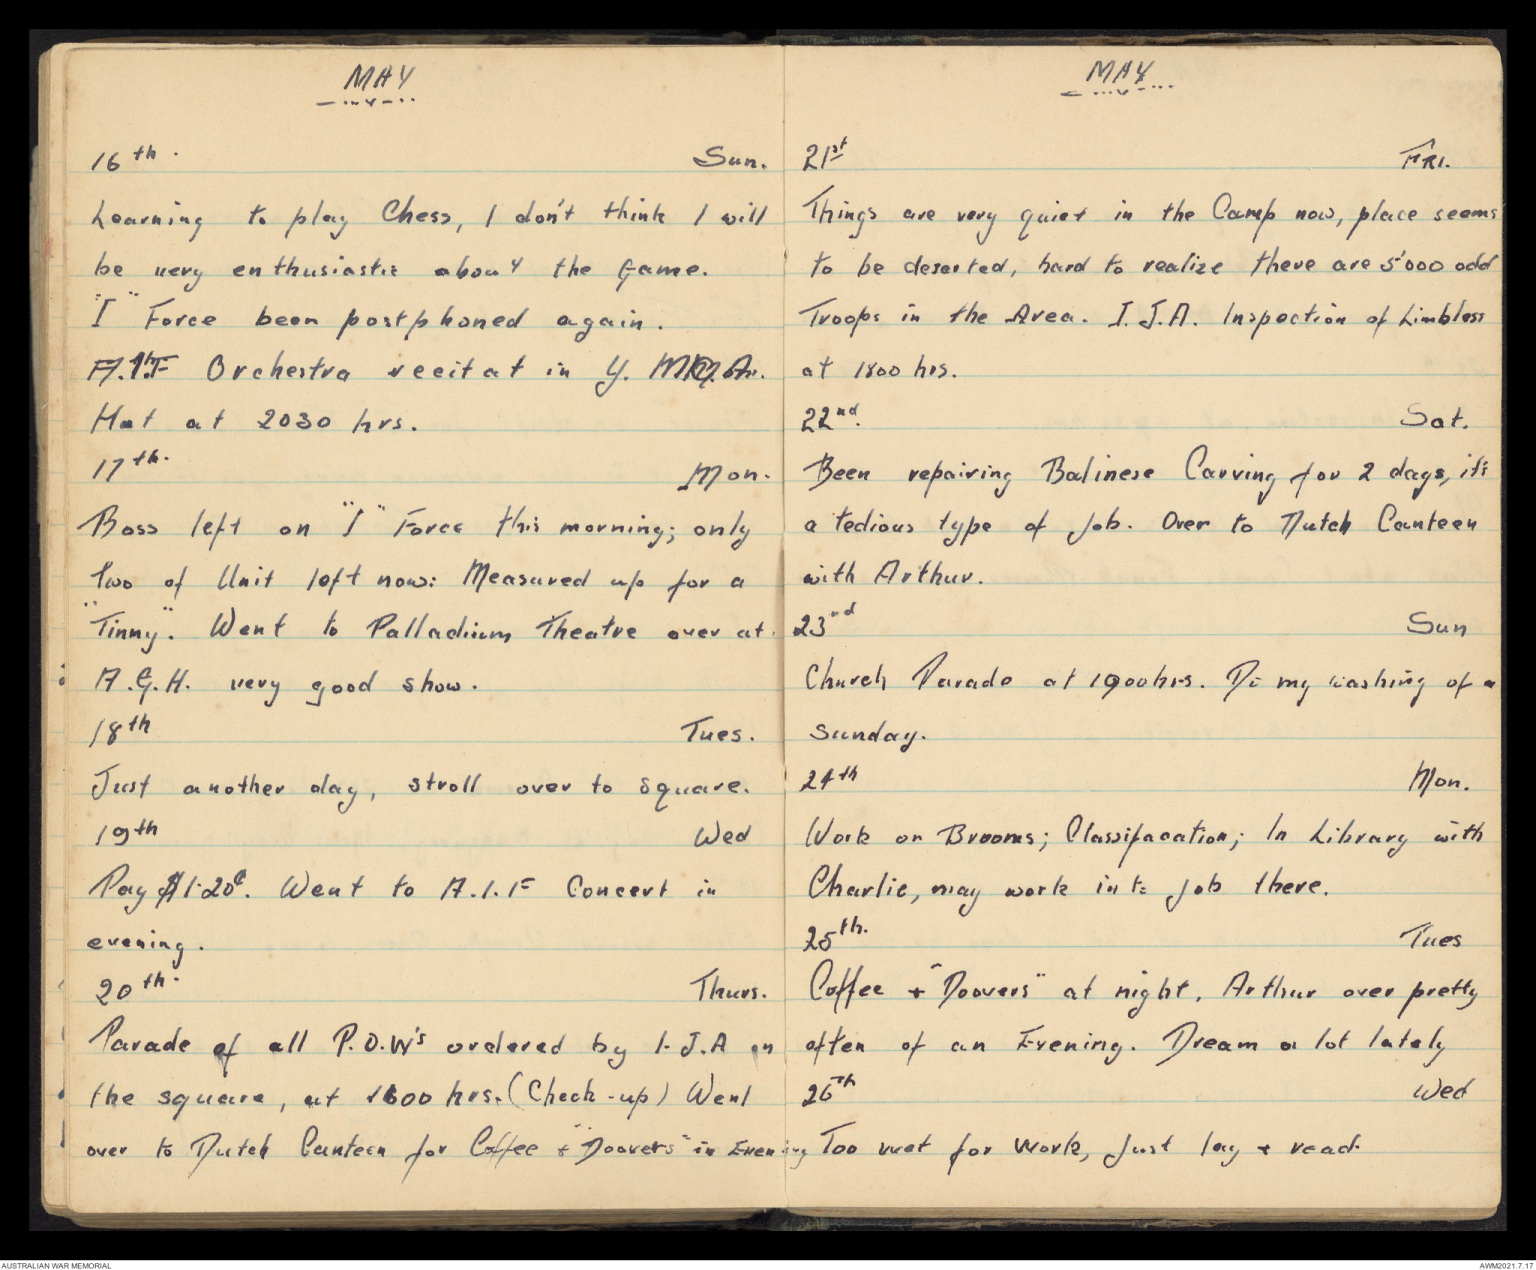 MAY
16th. Sun.
Learning to play Chess, I don't think I will
be very enthusiastic about the game.
"I" Force been postphoned again.
A.I.F Orchestra recitat in Y.M.
Hut at 2030 hrs.
17th. Mon.
Boss left on "I" Force this morning; only
two of Unit left now: Measured up for a
"Tinny". Went to Palladium Theatre over at
A.G.H. very good show.
18th Tues.
Just another day, stroll over to square.
19th Wed
Pay $1.20¢. Went to A.I.F Concert in
evening.
20th. Thurs.
Parade of all P.O.W's ordered by I.J.A on
the square, at 1600 hrs. (Check-up) Went
over to Dutch Canteen for Coffee + "Doovers" in Evening
MAY
21st FRI.
Things are very quiet in the Camp now, place seems
to be deserted, hard to realize there are 5'000 odd
Troops in the Area. I.J.A. Inspection of Limbless
at 1800 hrs.
22nd. Sat.
Been repairing Balinese Carving for 2 days, it's
a tedious type of job. Over to Dutch Canteen
with Arthur.
23nd Sun
Church Parade at 1900hrs. Do my washing of a
Sunday.
24th Mon.
Work on Brooms; Classifacation; In Library with
Charlie, may work into job there.
25th. Tues
Coffee + "Doovers" at night, Arthur over pretty
often of an Evening. Dream a lot lately
26Th Wed
Too wet for work, just lay + read.
AUSTRALIAN WAR MEMORIAL
AWM2021.7.17